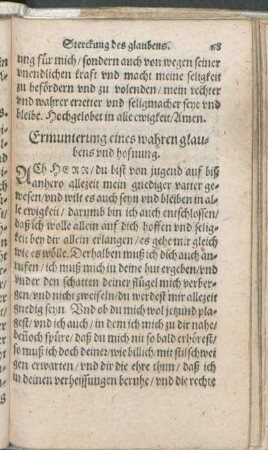 Sterckung des glaubens. 68
ung für mich/ sondern auch von wegen seiner
vnendlichen kraft vnd macht meine seligkeit
zu befördern vnd zu volenden/ mein rechter
vnd wahrer erretter vnd seligmacher seye vnd
bleibe. Hochgelobet in alle ewigkeit/ Amen.
Ermunterung eines wahren glau-
bens vnd hofnung.
ACh HERR/ du bist von jugend auf biß
anhero allezeit mein gnediger vatter ge-
wesen/ vnd wilt es auch seyn vnd bleiben in al-
le ewigkeit/ darumb bin ich auch entschlossen/
daß ich wolle allein auf dich hoffen vnd selig-
keit bey dir allein erlangen/ es gehe mir gleich
wie es wölle. Derhalben muß ich dich auch an-
rufen/ ich muß mich in deine hut ergeben/ vnd
vnder den schatten deiner flügel mich verber-
gen/ vnd nicht zweifeln/ du werdest mir allezeit
gnedig seyn. Vnd ob du mich wol jetzund pla-
gest/ vnd ich auch/ in dem ich mich zu dir nahe/
deñoch spüre/ daß du mich nit so bald erhörest/
so muß ich doch deiner/ wie billich/ mit stilschwei
gen erwarten/ vnd dir die ehre thun/ daß ich
in deinen verheissungen beruhe/ vnd die rechte